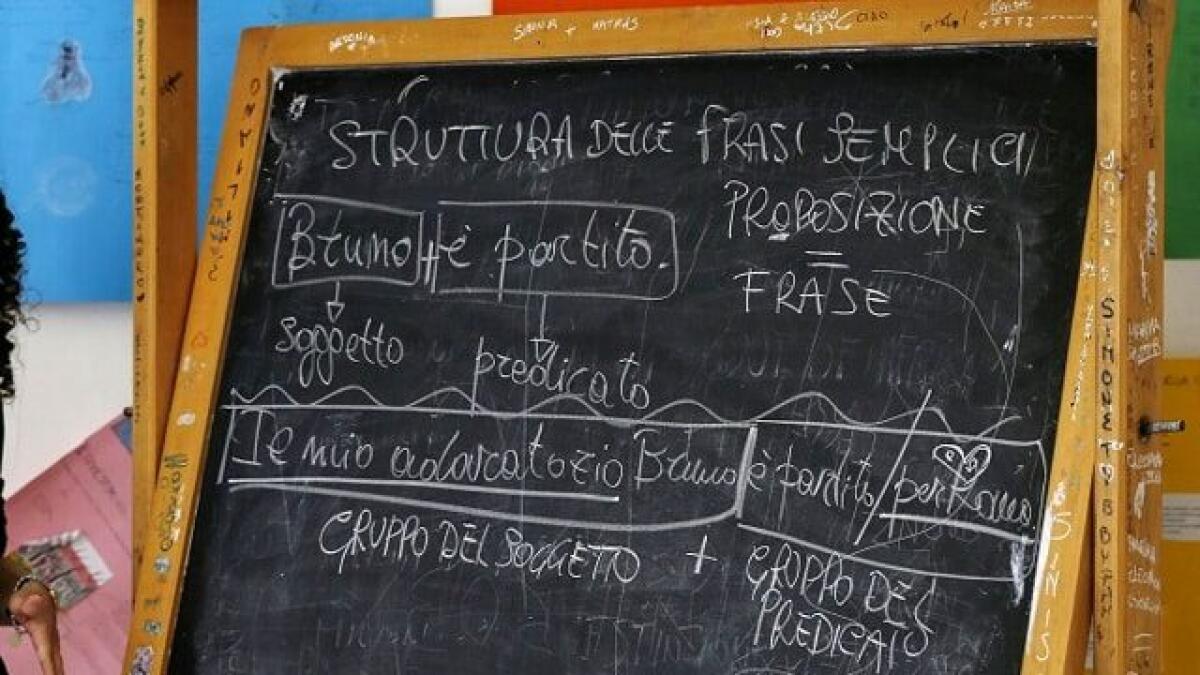 STRUTTURA DELLE FRASI SEMPLICI
PROPOSIZIONE
=
FRASE
Bruno + è partito.
soggetto predicato
Il mio adorato zio Bruno è partito / per Roma.
GRUPPO DEL SOGGETTO + GRUPPO DEL
PREDICATO
SIMONE
SINIS